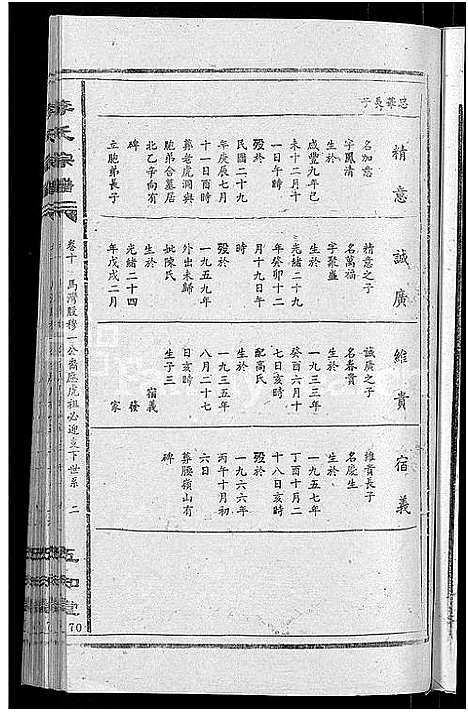 思華長子
精意
名加意
字鳳清
生於
咸豐九年己
未十二月年
一日午時
歿於
民國二十九
年庚辰七月
十一日酉時
葬老虎洞與
胞弟合墓居
北乙辛向有
碑
立胞弟長子
誠廣
精意之子
名萬福
字聚盛
生於
光緒二十九
年癸卯十二
月十九日午
時
歿於
一九五九年
外出未歸
妣陳氏
生於
光緒二十四
年戊戌二月
維貴
誠廣之子
名春貴
生於
一九三三年
癸酉六月十
七日亥時
配高氏
生於
一九三五年
八月二十七
日亥時
生子三
宿義
發
家
宿義
維貴長子
名慶生
生於
一九五七年
丁酉十月二
十八日亥時
歿於
一九六六年
丙午十月初
六日
葬腰嶺山有
碑
李氏宗譜
卷十
馬灣股穆一公裔應虎祖必迎立下世系
二
五知堂
70